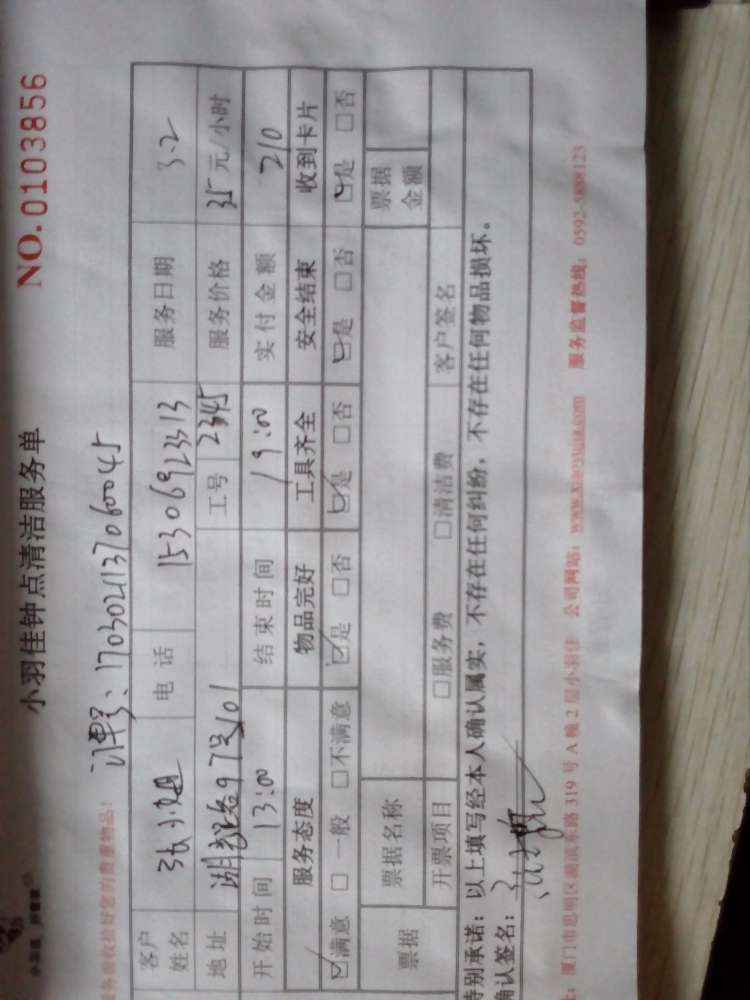 小羽佳钟点清洁服务单
NO.0103856
服务前收拾好您的贵重物品!
订单号:1703021137060045
客户姓名 张小姐 电话 15306923313 服务日期 3.2
地址 97号101 工号 2345 服务价格 35元/小时
开始时间 13:00 结束时间 19:00 实付金额 210
服务态度 物品完好 工具齐全 安全结束 收到卡片
☑满意 □一般 □不满意 ☑是 □否 ☑是 □否 ☑是 □否 ☑是 □否
票据 票据名称 票据金额
开票项目 □服务费 □清洁费 客户签名
特别承诺:以上填写经本人确认属实,不存在任何纠纷,不存在任何物品损坏。
确认签名:
厦门市思明区湖滨东路319号A幢2层小羽佳 公司网站:www.xiaoyujia.com 服务监督热线:0592-5888123